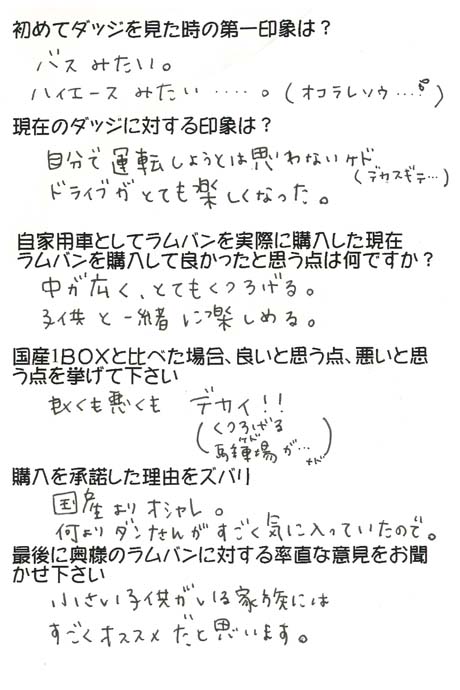 初めてダッジを見た時の第一印象は？
バスみたい。
ハイエースみたい‥‥。(オコラレソウ…)
現在のダッジに対する印象は？
自分で運転しようとは思わないケド
(デカスギテ…)
ドライブがとても楽しくなった。
自家用車としてラムバンを実際に購入した現在
ラムバンを購入して良かったと思う点は何ですか？
中が広く、とてもくつろげる。
子供と一緒に楽しめる。
国産1BOXと比べた場合、良いと思う点、悪いと思
う点を挙げて下さい
良くも悪くも デカイ!!
(くつろげる
けど
駐車場が…)
購入を承諾した理由をズバリ
国産よりオシャレ。
何よりダンナさんがすごく気に入っていたので。
最後に奥様のラムバンに対する率直な意見をお聞
かせ下さい
小さい子供がいる家族には
すごくオススメだと思います。